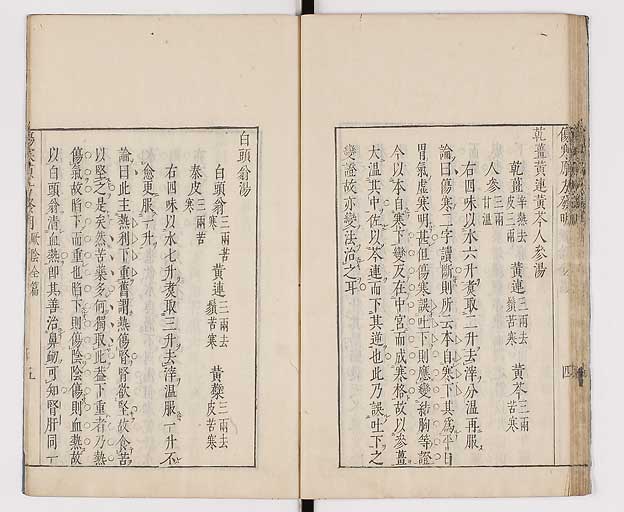 傷寒原方發明
四
乾薑黃連黃芩人參湯
乾薑辛熱去皮三兩 黃連三兩去鬚苦寒 黃芩三兩苦寒
人參三兩甘溫
右四味以水六升煑取二升去滓分溫再服
論曰傷寒二字讀斷則所云本自寒下其為平日
胃氣虛寒明甚但傷寒誤吐下則應變結胸等證
今以本自寒下變反在中宮而成寒格故以參薑
大溫其中佐以芩連而下其逆也此乃誤吐下之
變證故亦變法治之耳
白頭翁湯
白頭翁三兩苦寒 黃連三兩去鬚苦寒 黃蘗三兩去皮苦寒
秦皮三兩苦寒
右四味以水七升煑取三升去滓溫服一升不
愈更服一升
論曰此主熱利下重舊謂熱傷腎腎欲堅故食苦
以堅之是矣然苦藥多何獨取此蓋下重者乃熱
傷氣故陷下而重也陷下則傷陰陰傷則血熱故
以白頭翁清血熱即其善治鼻衂可知腎肝同一
厥陰全篇
五